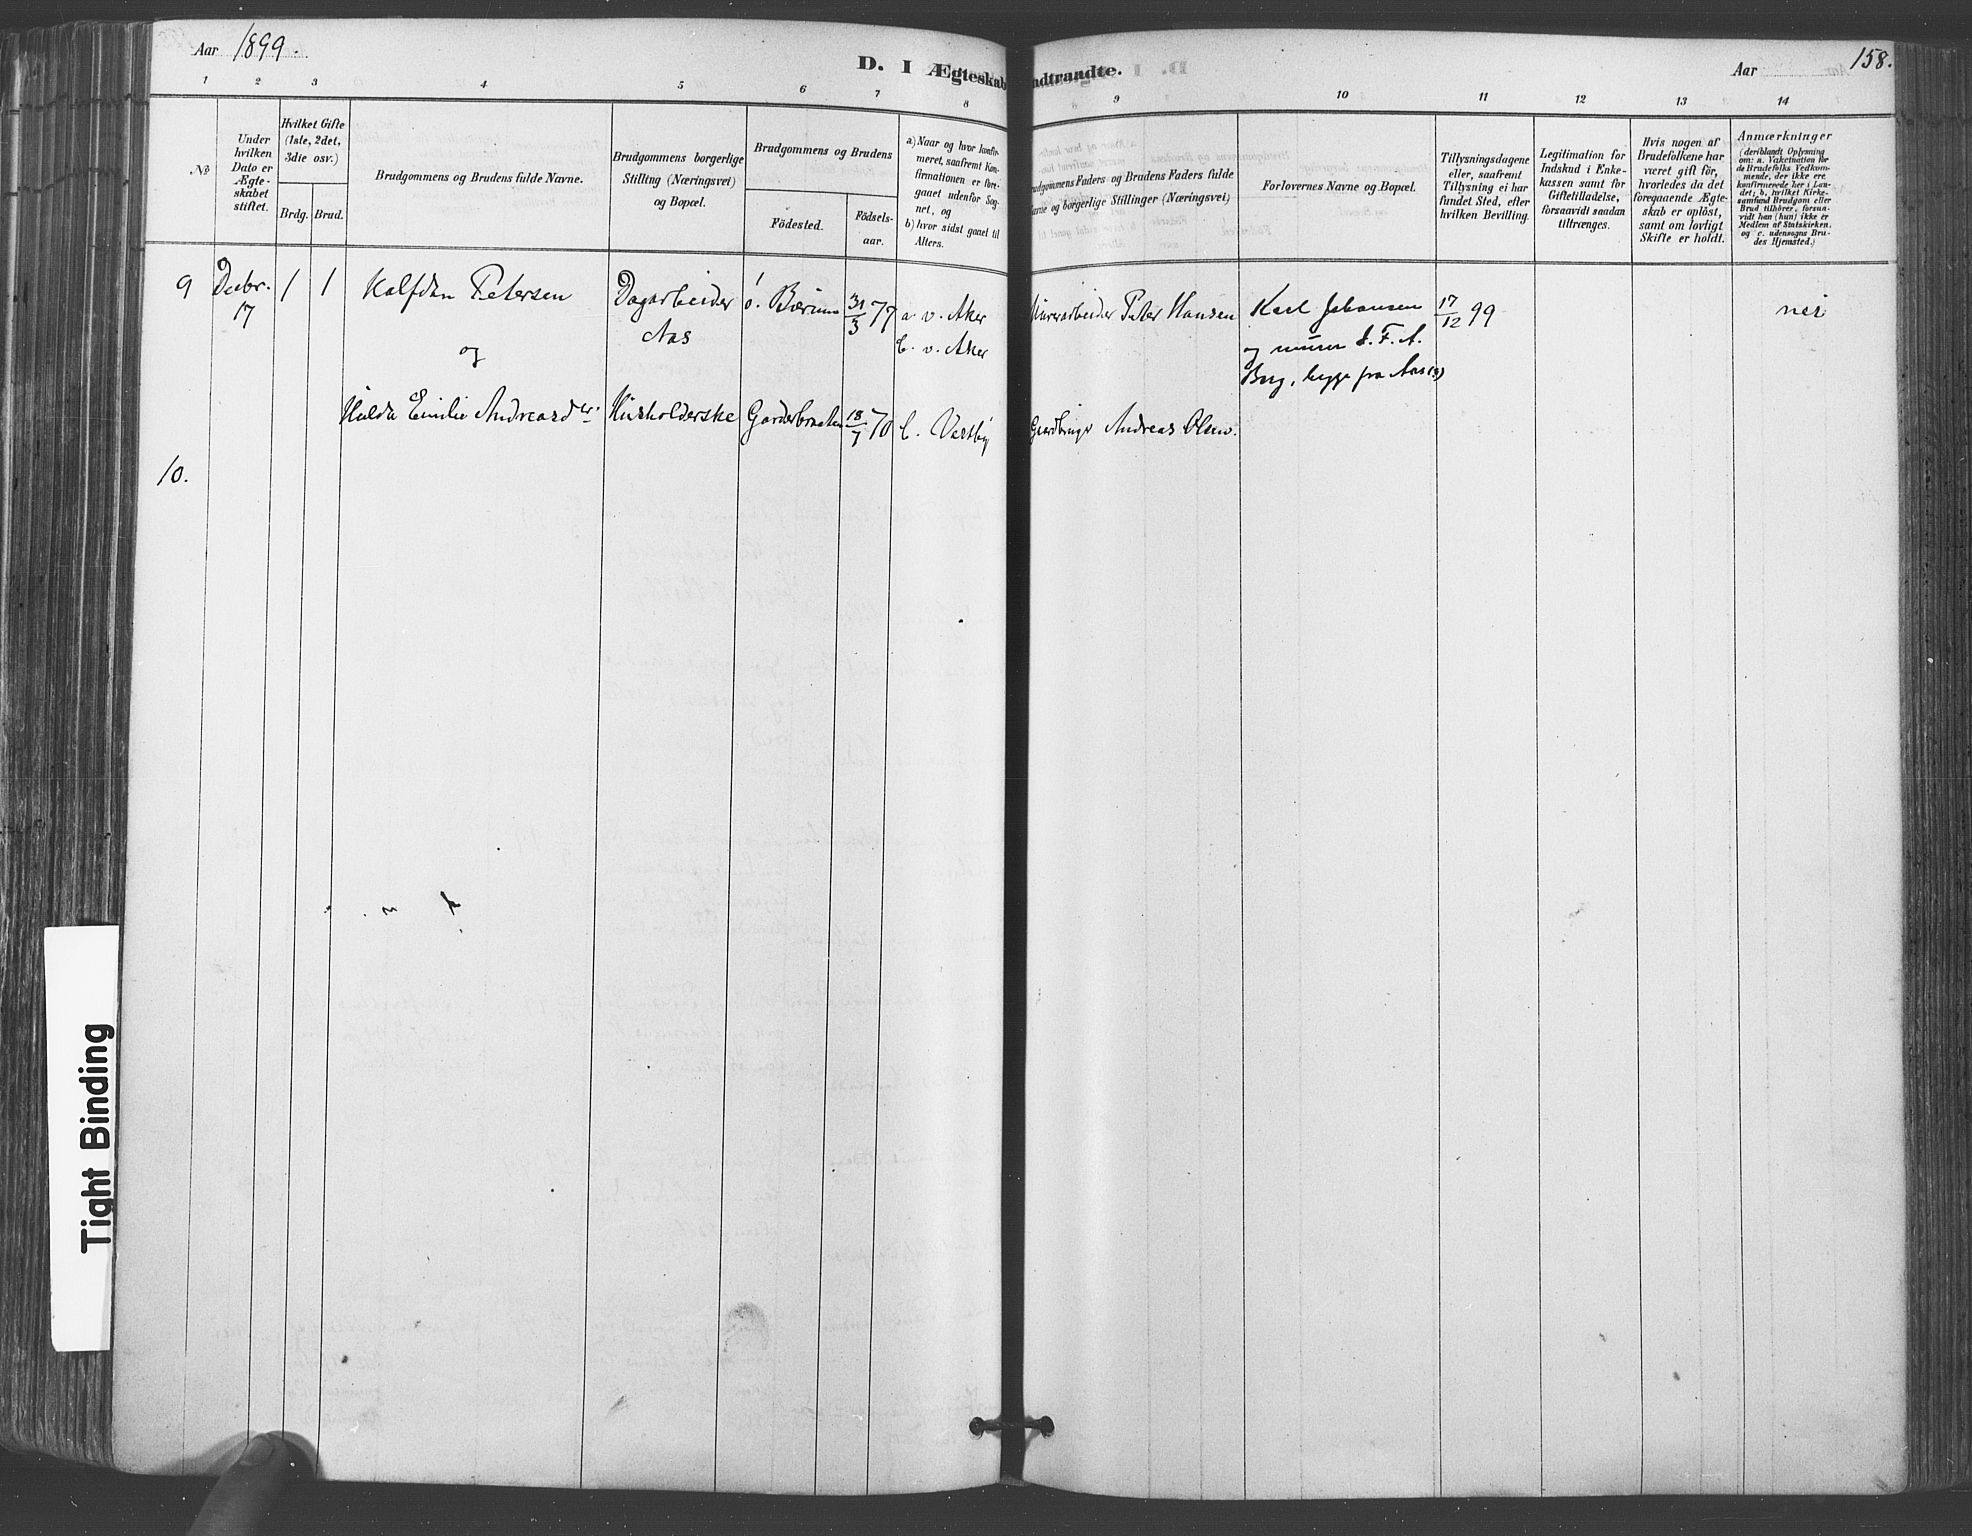 Aar 1899.
D. I Ægteskab Indtraadte.
Aar 158.
1 2 3 4 5 6 7 8 9 10 11 12 13 14
No
Under
hvilken
Dato er
Ægte-
skabet
stiftet.
Hvilket Gifte
(1ste, 2det,
3die osv.)
Brdg. Brud.
Brudgommens og Brudens fulde Navne.
Brudgommens borgerlige
Stilling (Næringsvei)
og Bopæl.
Brudgommens og Brudens
Födested.
Födsels-
aar.
a) Naar og hvor konfir-
meret, saafremt Kon-
firmationen er fore-
gaaet udenfor Sog-
net, og
b) hvor sidst gaaet til
Alters.
Brudgommens Faders og Brudens Faders fulde
Navne og borgerlige Stillinger (Næringsvei)
Forlovernes Navne og Bopæl.
Tillysningsdagene
eller, saafremt
Tillysning ei har
fundet Sted, efter
hvilken Bevilling.
Legitimation for
Indskud i Enke-
kassen samt for
Giftetilladelse,
forsaavidt saadan
tiltrænges.
Hvis nogen af
Brudefolkene har
været gift för,
hvorledes da det
foregaaende Ægte-
skab er oplöst,
samt om lovligt
Skifte er holdt.
Anmærkninger
(deriblandt Oplysning
om: a. Vakcination for
de Brudefolks Vedkom-
mende, der ikke ere
konfirmerede her i Lan-
det; b. hvilket Kirke-
samfund Brudgom eller
Brud tilhörer, forsaa-
vidt han (hun) ikke er
Medlem af Statskirken,
og c. udensogns Bru-
des Hjemsted.)
9 Decbr. 1 1 Halfdan Petersen Dagarbeider ö. Bærum 31/3 77 a v. Aker Murerarbeider Peter Hansen Karl Johansen 17/12 99 nei
17 og Aas b. v. Aker og murer F. A.
Berg, begge fra Aas
Hulda Emilie Andreasdtr. Husholderske Garderbraaten 18/7 70 b. Vestby Gaardbruger Andreas Olsen.
10.
Tight Binding